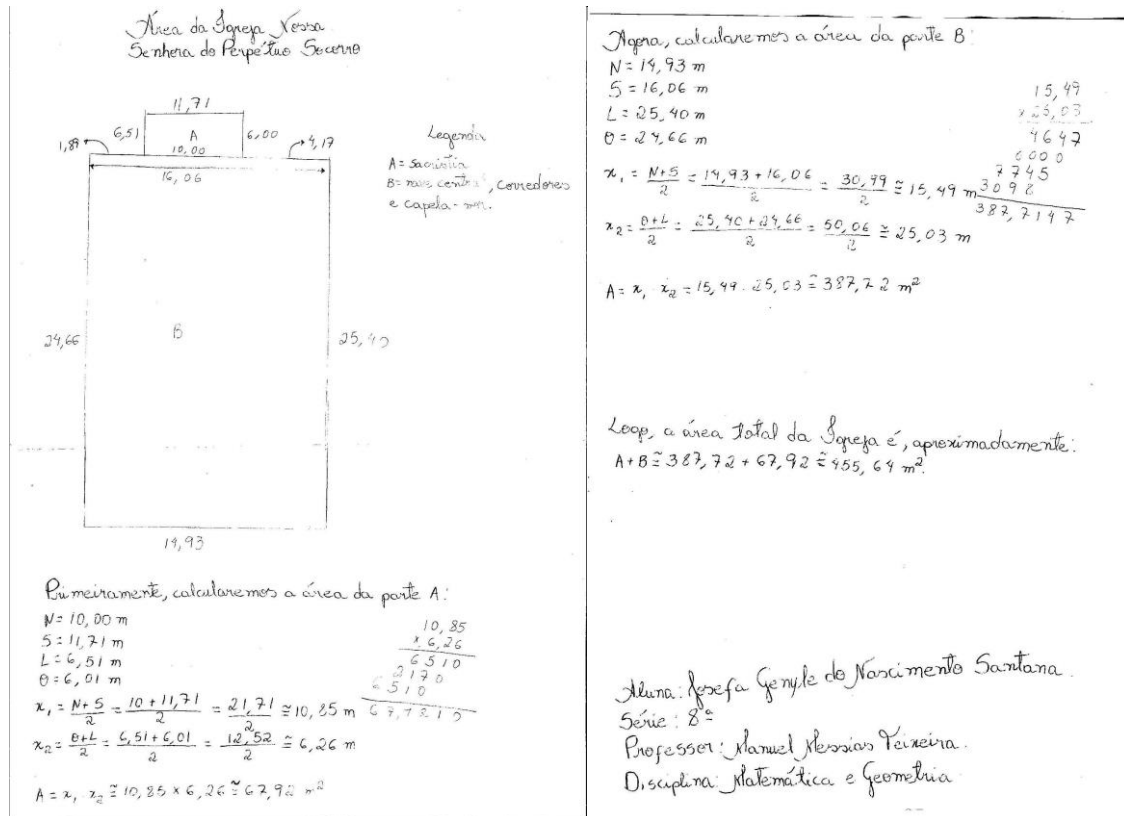 Área da Igreja Nossa
Senhora do Perpétuo Socorro
11,71
6,51
A
6,00
10,00
1,89
4,17
16,06
Legenda
A = sacristia
B = nave central, corredores
e capela-mor.
24,66
B
25,40
14,93
Primeiramente, calcularemos a área da parte A:
N = 10,00 m
S = 11,71 m
L = 6,51 m
θ = 6,01 m
x₁ = N+S/2 = 10 + 11,71/2 = 21,71/2 ≅ 10,85 m
x₂ = θ+L/2 = 6,51 + 6,01/2 = 12,52/2 ≅ 6,26 m
A = x₁ x₂ ≅ 10,85 x 6,26 ≅ 67,92 m²
10,85
x 6,26
6510
2170
6510
Agora, calcularemos a área da parte B:
N = 14,93 m
S = 16,06 m
L = 25,40 m
θ = 24,66 m
x₁ = N+S/2 = 14,93 + 16,06/2 = 30,99/2 ≅ 15,49 m
x₂ = θ+L/2 = 25,40 + 24,66/2 = 50,06/2 ≅ 25,03 m
A = x₁ x₂ = 15,49 . 25,03 ≅ 387,72 m²
15,49
x 25,03
4647
0000
7745
3098
387,7147
Logo, a área total da Igreja é, aproximadamente:
A + B ≅ 387,72 + 67,92 ≅ 455,64 m².
Aluna: Josefa Genyle do Nascimento Santana.
Série: 8ª
Professor: Manuel Messias Teixeira.
Disciplina: Matemática e Geometria